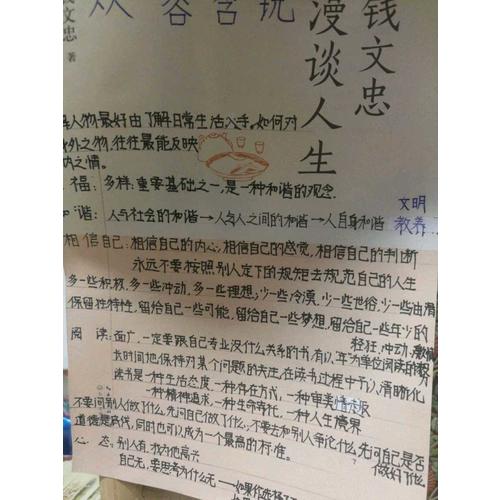 从容含玩
钱文忠
漫谈人生
文忠 著
人物最好由了解日常生活入手。如何对
外之物,往往最能反映
内之情。
福:多样;重要基础之一,是一种和谐的观念.
谐:人与社会的和谐→人与人之间的和谐→人自身和谐
文明
教养
相信自己:相信自己的内心,相信自己的感觉,相信自己的判断
永远不要按照别人定下的规矩去规范自己的人生
多一些积极,多一些冲动,多一些理想,少一些冷漠,少一些世俗,少一些油滑
保留独特性,留给自己一些可能,留给自己一些梦想,留给自己一些年少的
轻狂,冲动,激情
阅 读:面广,一定要跟自己专业没什么关系的书,有以年为单位阅读的
长时间地保持对某个问题的关注,在读书过程中予以清晰化
读书是一种生活态度,一种存在方式,一种审美情
一种精神追求,一种生命寄托,一种人生境界
不要问别人做了什么,先问自己做了什么;不要去和别人争论什么,先问自己是否
做好了什么
道德是高代,同时也可以成为一个最高的标准。
心 态:别人有,我为他高兴
自己无,要思考为什么无——如果你选择了